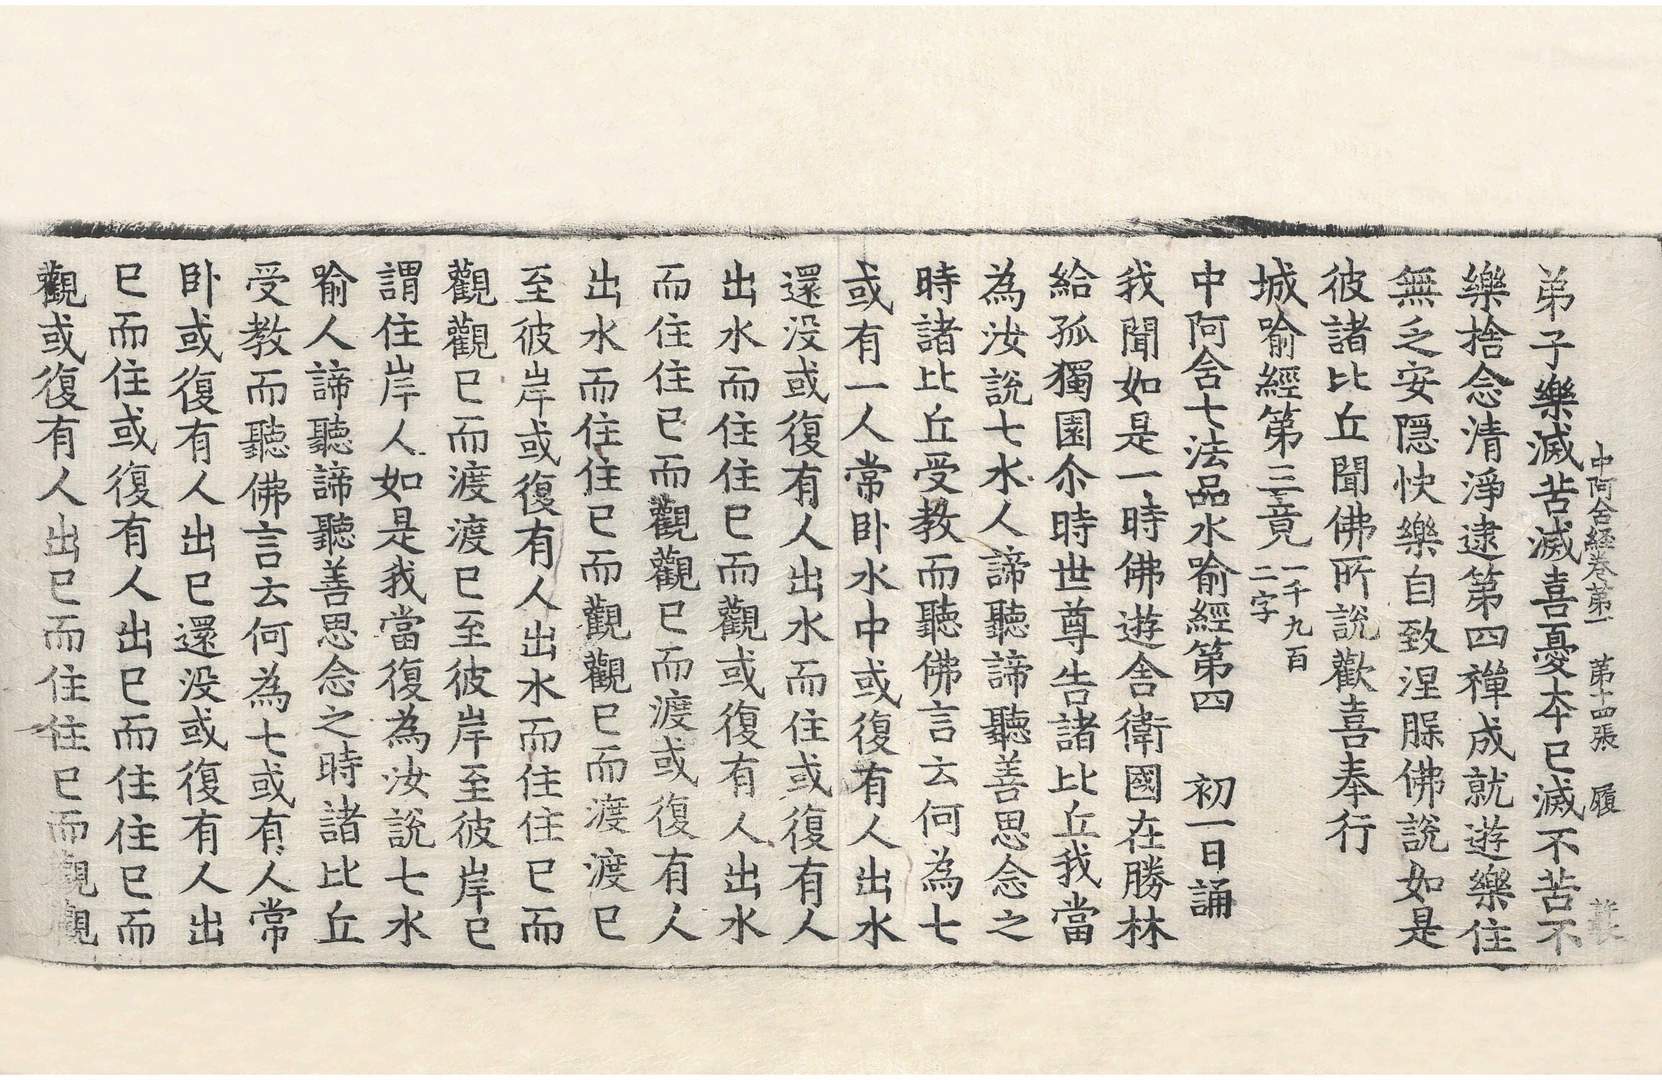 中阿含經卷第一　第十四張　履
弟子樂滅苦滅喜憂本已滅不苦不
樂捨念清淨逮第四禪成就遊樂住
無乏安隱快樂自致涅槃佛說如是
彼諸比丘聞佛所說歡喜奉行
城喻經第三竟一千九百二字
中阿含七法品水喻經第四　初一日誦
我聞如是一時佛遊舍衛國在勝林
給孤獨園尒時世尊告諸比丘我當
為汝說七水人諦聽諦聽善思念之
時諸比丘受教而聽佛言云何為七
或有一人常卧水中或復有人出水
還没或復有人出水而住或復有人
出水而住住已而觀或復有人出水
而住住已而觀觀已而渡或復有人
出水而住住已而觀觀已而渡渡已
至彼岸或復有人出水而住住已而
觀觀已而渡渡已至彼岸至彼岸已
謂住岸人如是我當復為汝說七水
喻人諦聽諦聽善思念之時諸比丘
受教而聽佛言云何為七或有人常
卧或復有人出已還没或復有人出
已而住或復有人出已而住住已而
觀或復有人出已而住住已而觀觀